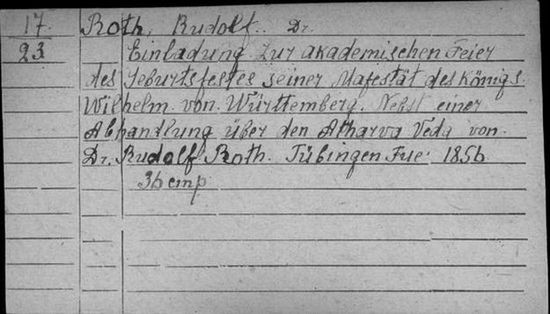 17. Roth, Rudolf. Dr.
23 Einladung zur akademischen Feier
des Geburtsfestes seiner Majestät des Königs
Wilhelm von Württemberg. Nebst einer
Abhandlung über den Atharva Veda von
Dr. Rudolf Roth. Tübingen Fue: 1856